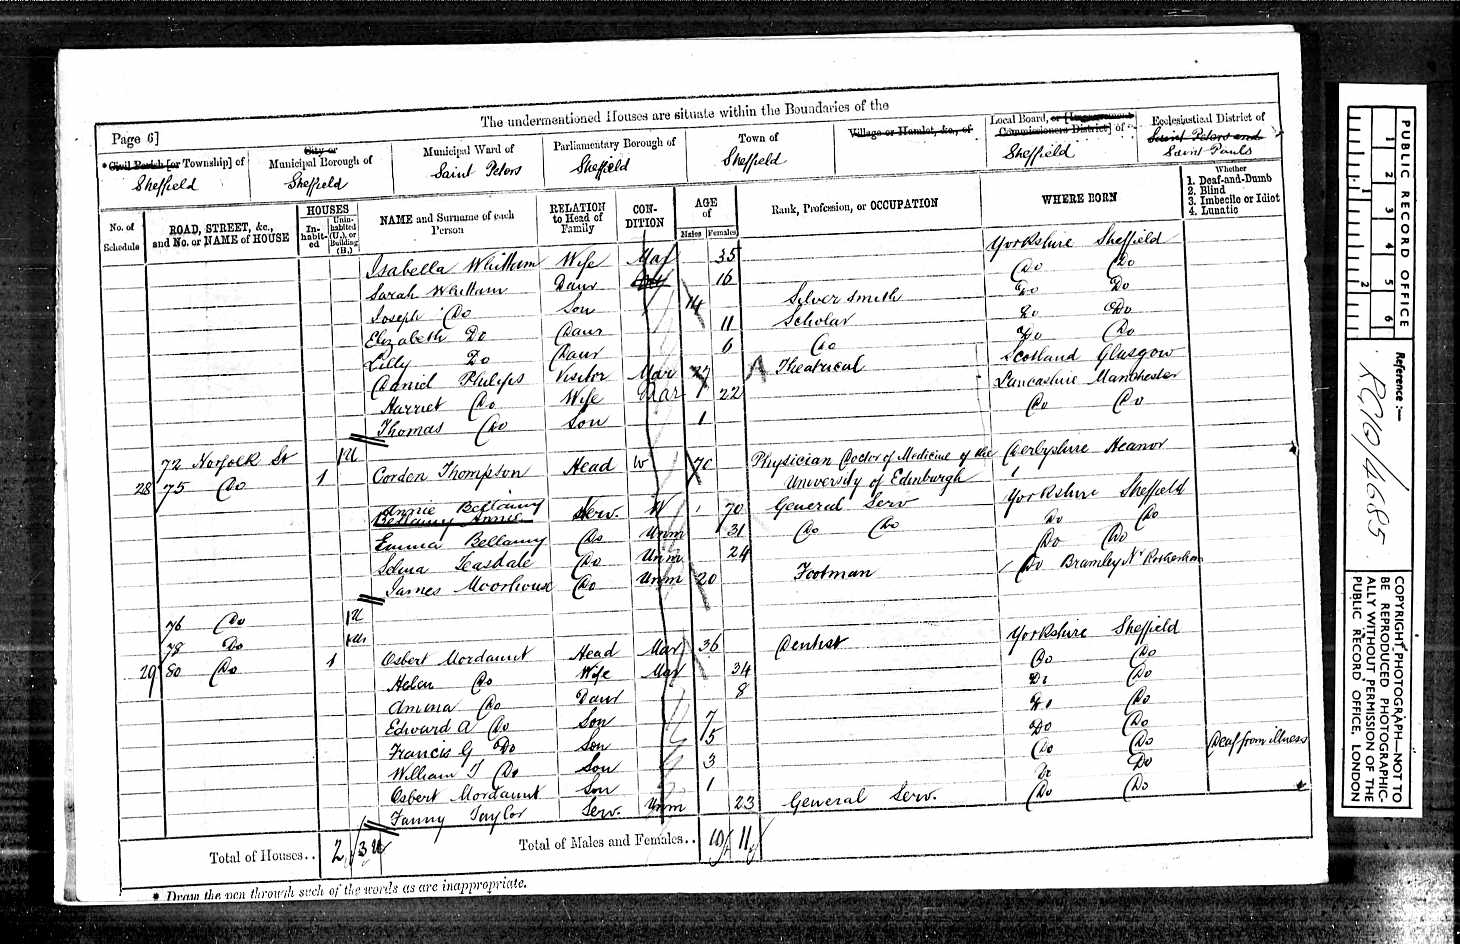 The undermentioned Houses are situate within the Boundaries of the
Page 6]
* Civil Parish [or Township] of
Sheffield
City or
Municipal Borough of
Sheffield
Municipal Ward of
Saint Peters
Parliamentary Borough of
Sheffield
Town of
Sheffield
Village or Hamlet, &c., of
Local Board, or [Improvement
Commissioners District] of
Sheffield
Ecclesiastical District of
Saint Peters and
Saint Pauls
No. of Schedule
ROAD, STREET, &c., and No. or NAME of HOUSE
HOUSES
Inhabited
Uninhabited (U.), or Building (B.)
NAME and Surname of each Person
RELATION to Head of Family
CONDITION
AGE of
Males Females
Rank, Profession, or OCCUPATION
WHERE BORN
Whether
1. Deaf-and-Dumb
2. Blind
3. Imbecile or Idiot
4. Lunatic
Isabella Whittam Wife Mar 35 Yorkshire Sheffield
Sarah Whittam Daur 16 Do Do
Joseph Do Son 14 Silver Smith Do Do
Elizabeth Do Daur 11 Scholar Do Do
Lilly Do Daur 6 Do Do Do
Daniel Philips Visitor Mar Theatrical Scotland Glasgow
Harriet Do Wife Mar 22 Lancashire Manchester
Thomas Do Son 1 Do Do
72 Norfolk St 1U
28 75 Do 1 Corden Thompson Head W 70 Physician Doctor of Medicine of the Derbyshire Heanor
University of Edinburgh
Annie Bellamy
Bellamy Annie Serv. W 70 General Serv Yorkshire Sheffield
Emma Bellamy Do Unm 31 Do Do Do Do
Selina Teasdale Do Unm 24 Do Do
James Moorhouse Do Unm 20 Footman Do Bramley Nr Rotherham
76 Do 1U
78 Do 1U
29 80 Do 1 Osbert Mordaunt Head Mar 36 Dentist Yorkshire Sheffield
Helen Do Wife Mar 34 Do Do
Amena Do Daur 8 Do Do
Edward A Do Son 7 Do Do
Francis G Do Son 5 Do Do
William T Do Son 3 Do Do Deaf from illness
Osbert Mordaunt Son 1 Do Do
Fanny Taylor Serv. Unm 23 General Serv. Do Do
Total of Houses.. 2 3U
Total of Males and Females.. 10 11
* Draw the pen through such of the words as are inappropriate.
PUBLIC RECORD OFFICE
1 2 3 4 5 6
1 2
Reference :—
RG10/4685
COPYRIGHT PHOTOGRAPH—NOT TO
BE REPRODUCED PHOTOGRAPHIC-
ALLY WITHOUT PERMISSION OF THE
PUBLIC RECORD OFFICE, LONDON